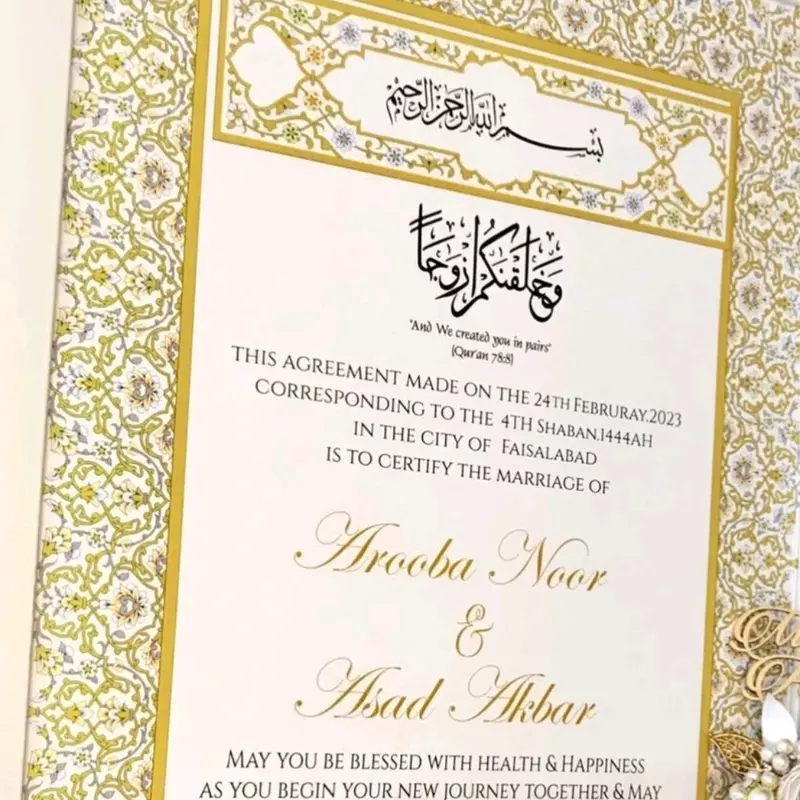 بسم الله الرحمن الرحيم
وخلقنكم ازوجا
"And We created you in pairs"
(Qur'an 78:8)
THIS AGREEMENT MADE ON THE 24TH FEBRURAY.2023
CORRESPONDING TO THE 4TH SHABAN.1444AH
IN THE CITY OF FAISALABAD
IS TO CERTIFY THE MARRIAGE OF
Arooba Noor
&
Asad Akbar
MAY YOU BE BLESSED WITH HEALTH & HAPPINESS
AS YOU BEGIN YOUR NEW JOURNEY TOGETHER & MAY